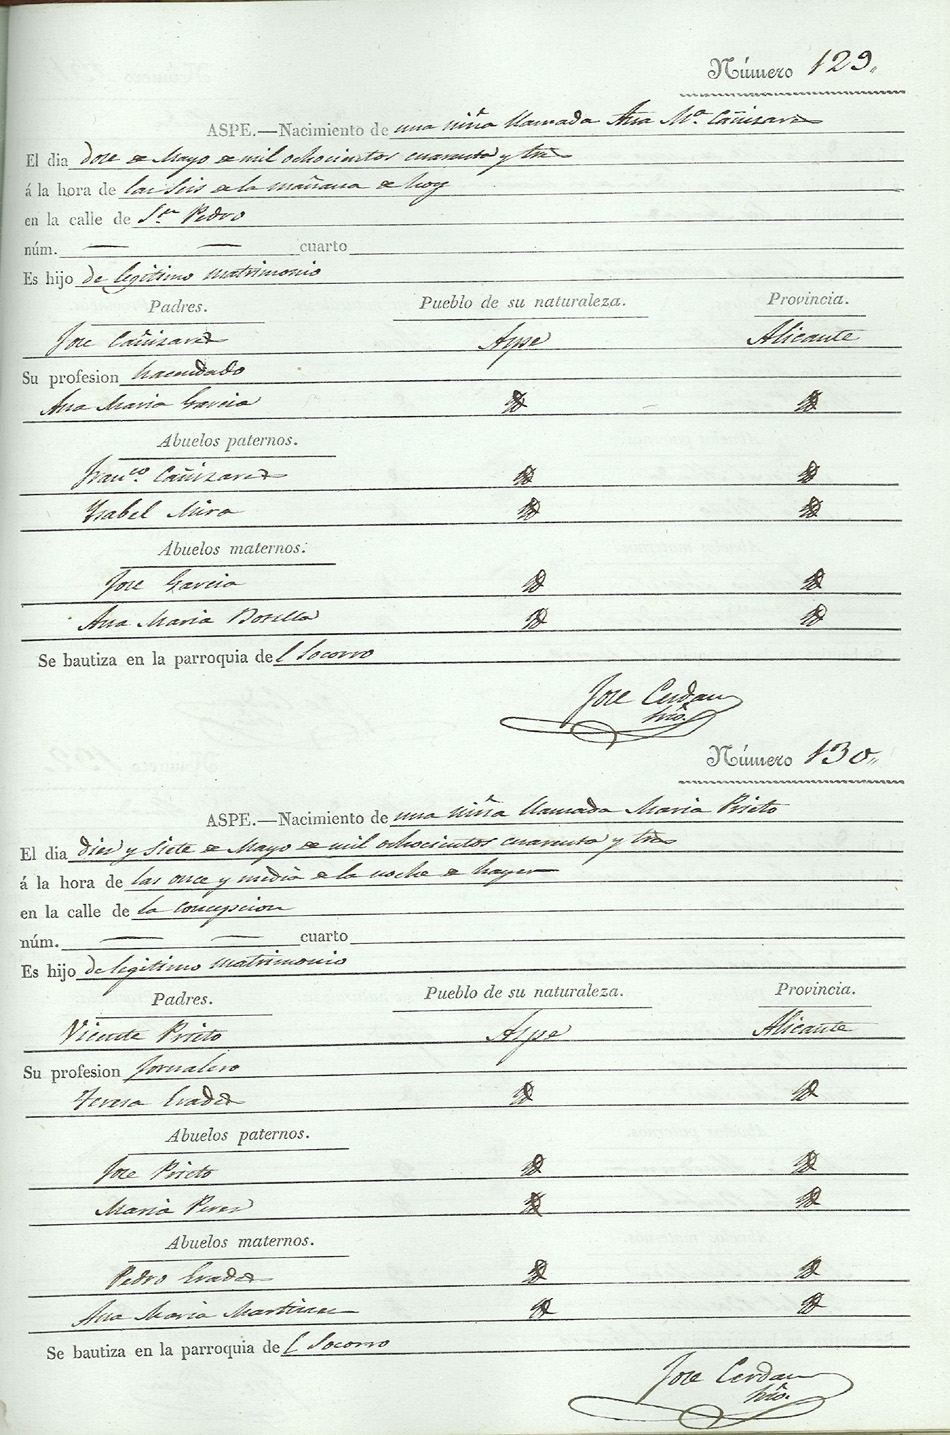 Número 129.
ASPE.—Nacimiento de una niña llamada Ana Mª Cañizares
El dia doze de Mayo de mil ochocientos cuarenta y tres
á la hora de las seis de la mañana de hoy
en la calle de Sn Pedro
núm. — — cuarto
Es hijo de legitimo matrimonio
Padres. Pueblo de su naturaleza. Provincia.
Jose Cañizares Aspe Alicante
Su profesion hacendado
Ana Maria Garcia id id
Abuelos paternos.
Franco. Cañizares id id
Ysabel Mira id id
Abuelos maternos.
Jose Garcia id id
Ana Maria Botella id id
Se bautiza en la parroquia del Socorro
Jose Cerdan
Número 130.
ASPE.—Nacimiento de una niña llamada Maria Prieto
El dia diez y siete de Mayo de mil ochocientos cuarenta y tres
á la hora de las once y media de la noche de hayer
en la calle de la Concepcion
núm. — — cuarto
Es hijo de legitimo matrimonio
Padres. Pueblo de su naturaleza. Provincia.
Vicente Prieto Aspe Alicante
Su profesion Jornalero
Teresa Erades id id
Abuelos paternos.
Jose Prieto id id
Maria Perez id id
Abuelos maternos.
Pedro Erades id id
Ana Maria Martinez id id
Se bautiza en la parroquia del Socorro
Jose Cerdan